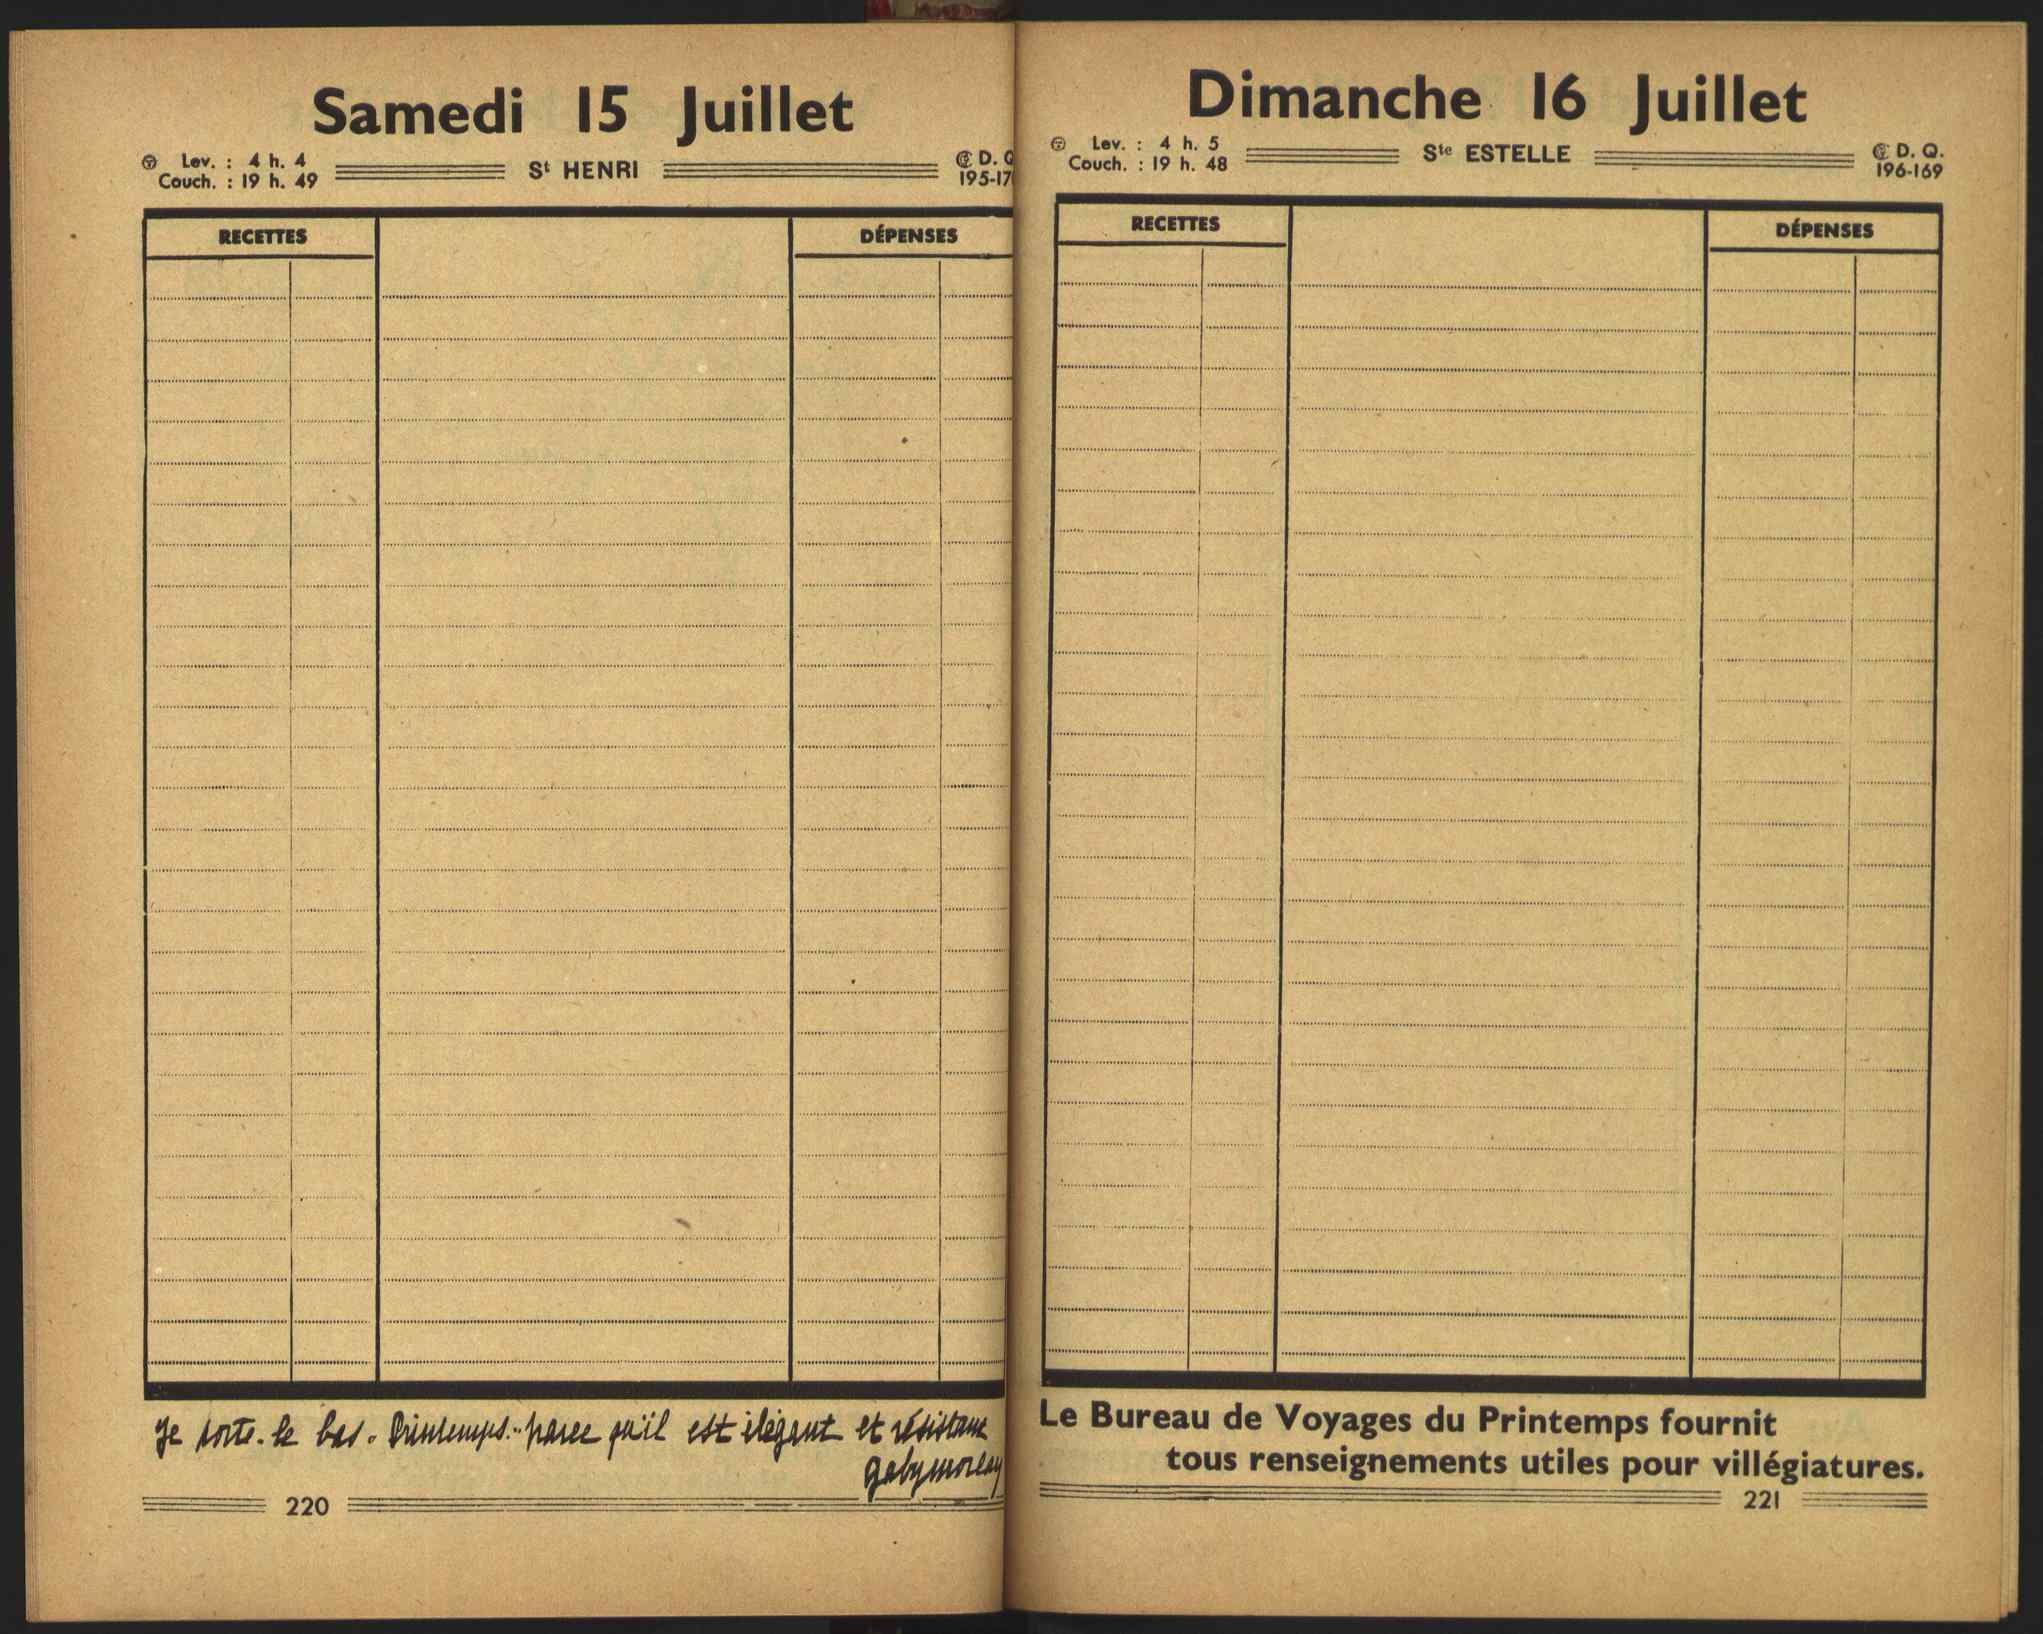 Samedi 15 Juillet
Lev. : 4 h. 4
Couch. : 19 h. 49
St HENRI
D. Q
195-17
RECETTES
DÉPENSES
Je porte le bas "Printemps" parce qu'il est élégant et résistant
gaby morlay
220
Dimanche 16 Juillet
Lev. : 4 h. 5
Couch. : 19 h. 48
Ste ESTELLE
D. Q.
196-169
RECETTES
DÉPENSES
Le Bureau de Voyages du Printemps fournit
tous renseignements utiles pour villégiatures.
221